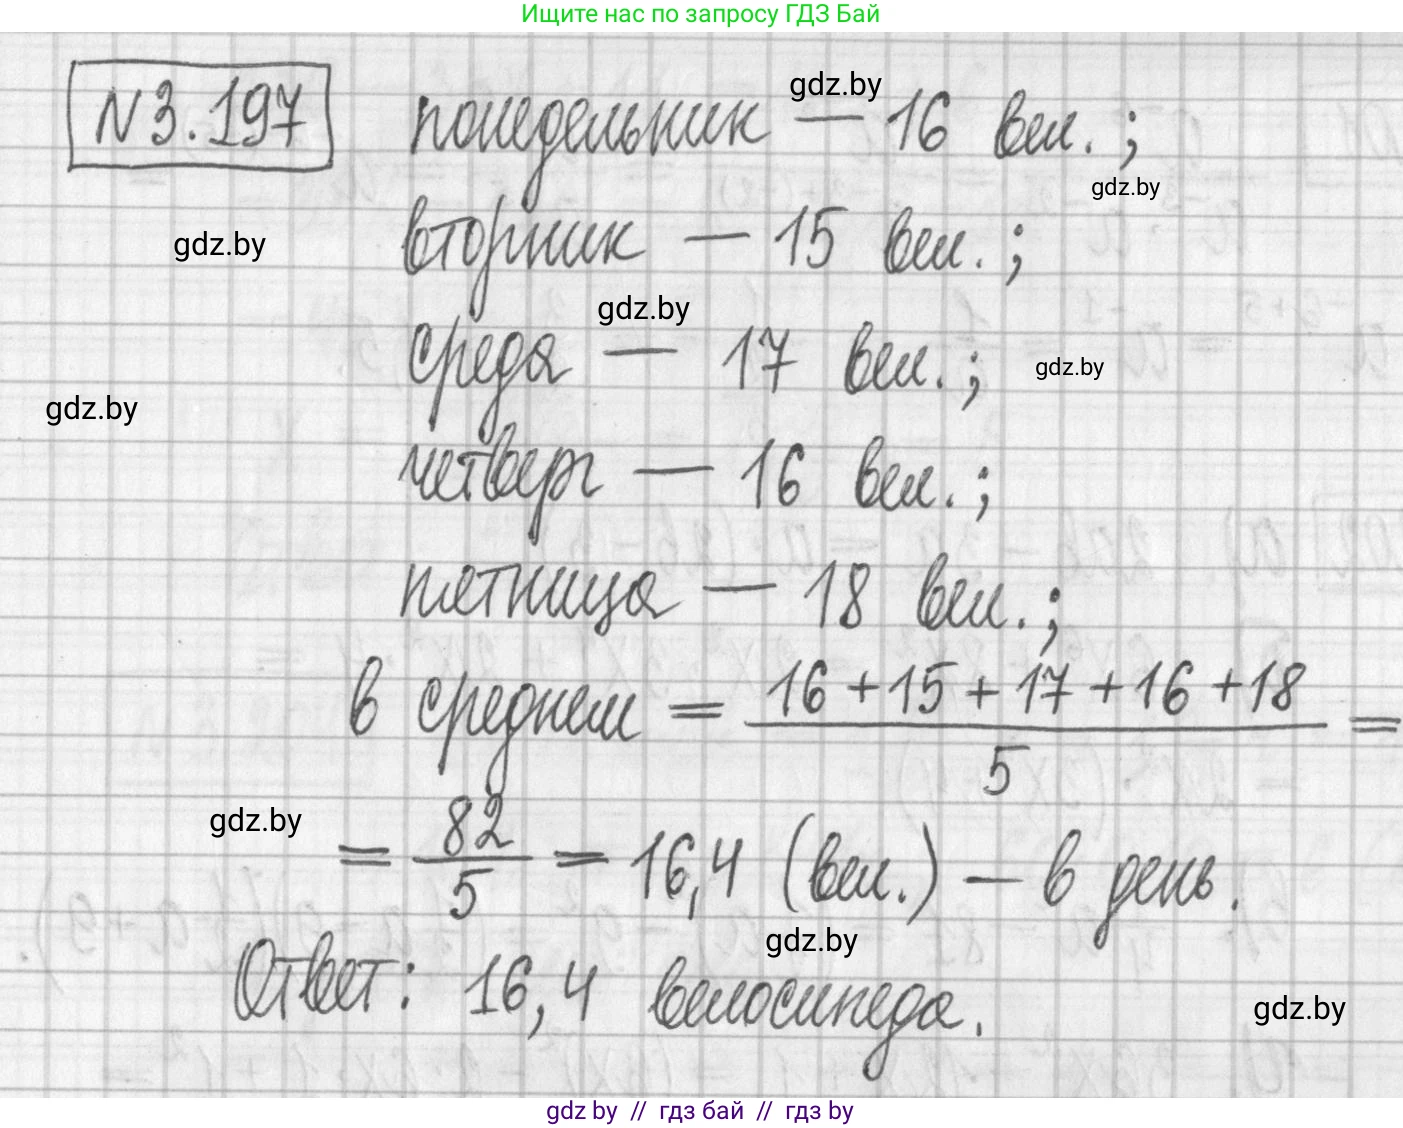 Ищите нас по запросу ГДЗ Бай
N3.197
понедельник — 16 вел.;
gdz.by
gdz.by
вторник — 15 вел.;
gdz.by
gdz.by
среда — 17 вел.;
gdz.by
gdz.by
четверг — 16 вел.;
пятница — 18 вел.;
в среднем = (16 + 15 + 17 + 16 + 18) / 5 =
gdz.by
= 82 / 5 = 16,4 (вел.) — в день.
gdz.by
Ответ: 16,4 велосипеда.
gdz.by
gdz by // гдз бай // гдз by